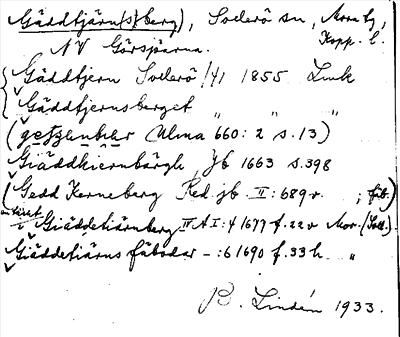 Gäddtjärn(s)(berg), Sollerö sn, Mora tg,
NV Görsjöarna. Kopp. l.
Gäddtjern Sollerö /41 1855 Lmk
Gäddtjernsberget " " "
(Ulma 660:2 s.13)
Giäddkiernbärgh Jb 1663 s.398
(Gedd Kerneberg Red. jb. II:689v. ; fjb.)
Giäddetiärnberg II A I:4 1677 f.22v Mor. (Soll.)
Giäddetiärns fäbodar - :6 1690 f.33 h. "
B. Lindén 1933.